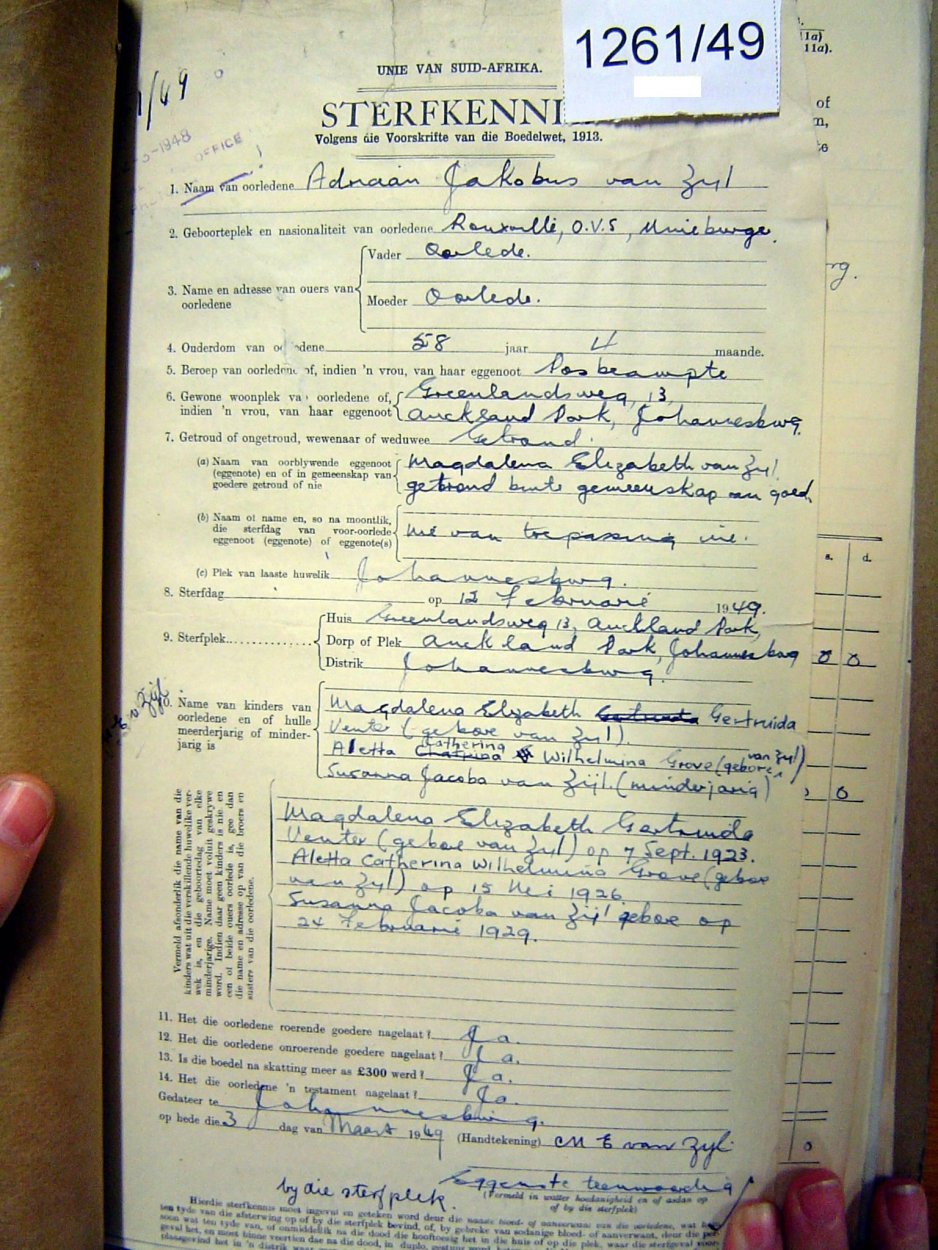 1261/49
UNIE VAN SUID-AFRIKA.
STERFKENNI
Volgens die Voorskrifte van die Boedelwet, 1913.
1948
OFFICE
1. Naam van oorledene Adriaan Jakobus van Zyl
2. Geboorteplek en nasionaliteit van oorledene Rouxville, O.V.S, Unieburger.
3. Name en adresse van ouers van oorledene
Vader Oorlede.
Moeder Oorlede.
4. Ouderdom van oorledene 58 jaar 4 maande.
5. Beroep van oorledene of, indien 'n vrou, van haar eggenoot Posbeampte
6. Gewone woonplek van oorledene of, Greenlandsweg, 13,
indien 'n vrou, van haar eggenoot Auckland Park, Johannesburg.
7. Getroud of ongetroud, wewenaar of weduwee Getroud.
(a) Naam van oorblywende eggenoot Magdalena Elizabeth van Zyl
(eggenote) en of in gemeenskap van
goedere getroud of nie getroud buite gemeenskap van goed
(b) Naam of name en, so na moontlik,
die sterfdag van voor-oorlede nie van toepassing nie.
eggenoot (eggenote) of eggenote(s)
(c) Plek van laaste huwelik Johannesburg.
8. Sterfdag op 12 Februarie 1949.
9. Sterfplek
Huis Greenlandsweg 13, Auckland Park,
Dorp of Plek Auckland Park, Johannesburg
Distrik Johannesburg.
10. Name van kinders van oorledene en of hulle meerderjarig of minderjarig is
Magdalena Elizabeth Gertruida Gertruida
Venter (gebore van Zyl).
Aletta Catherina Wilhelmina Grove (gebore van Zyl)
Susanna Jacoba van Zyl. (minderjarig)
Vermeld afsonderlik die name van die
kinders wat uit die verskillende huwelike ver-
wek is, en die geboortedag van elke
minderjarige. Name moet voluit geskrywe
word. Indien daar geen kinders is nie en
een of beide ouers oorlede is, gee dan
die name en adresse op van die broers en
susters van die oorledene.
Magdalena Elizabeth Gertruida
Venter (gebore van Zyl) op 7 Sept. 1923.
Aletta Catherina Wilhelmina Grove (gebore
van Zyl) op 15 Mei 1926.
Susanna Jacoba van Zyl gebore op
24 Februarie 1929.
11. Het die oorledene roerende goedere nagelaat? Ja.
12. Het die oorledene onroerende goedere nagelaat? Ja.
13. Is die boedel na skatting meer as £300 werd? Ja.
14. Het die oorledene 'n testament nagelaat? Ja.
Gedateer te Johannesburg.
op hede die 3 dag van Maart 1949 (Handtekening) M E van Zyl
Eggenote teenwoordig
by die sterfplek
(Vermeld in watter hoedanigheid en of aldan op
of by die sterfplek)